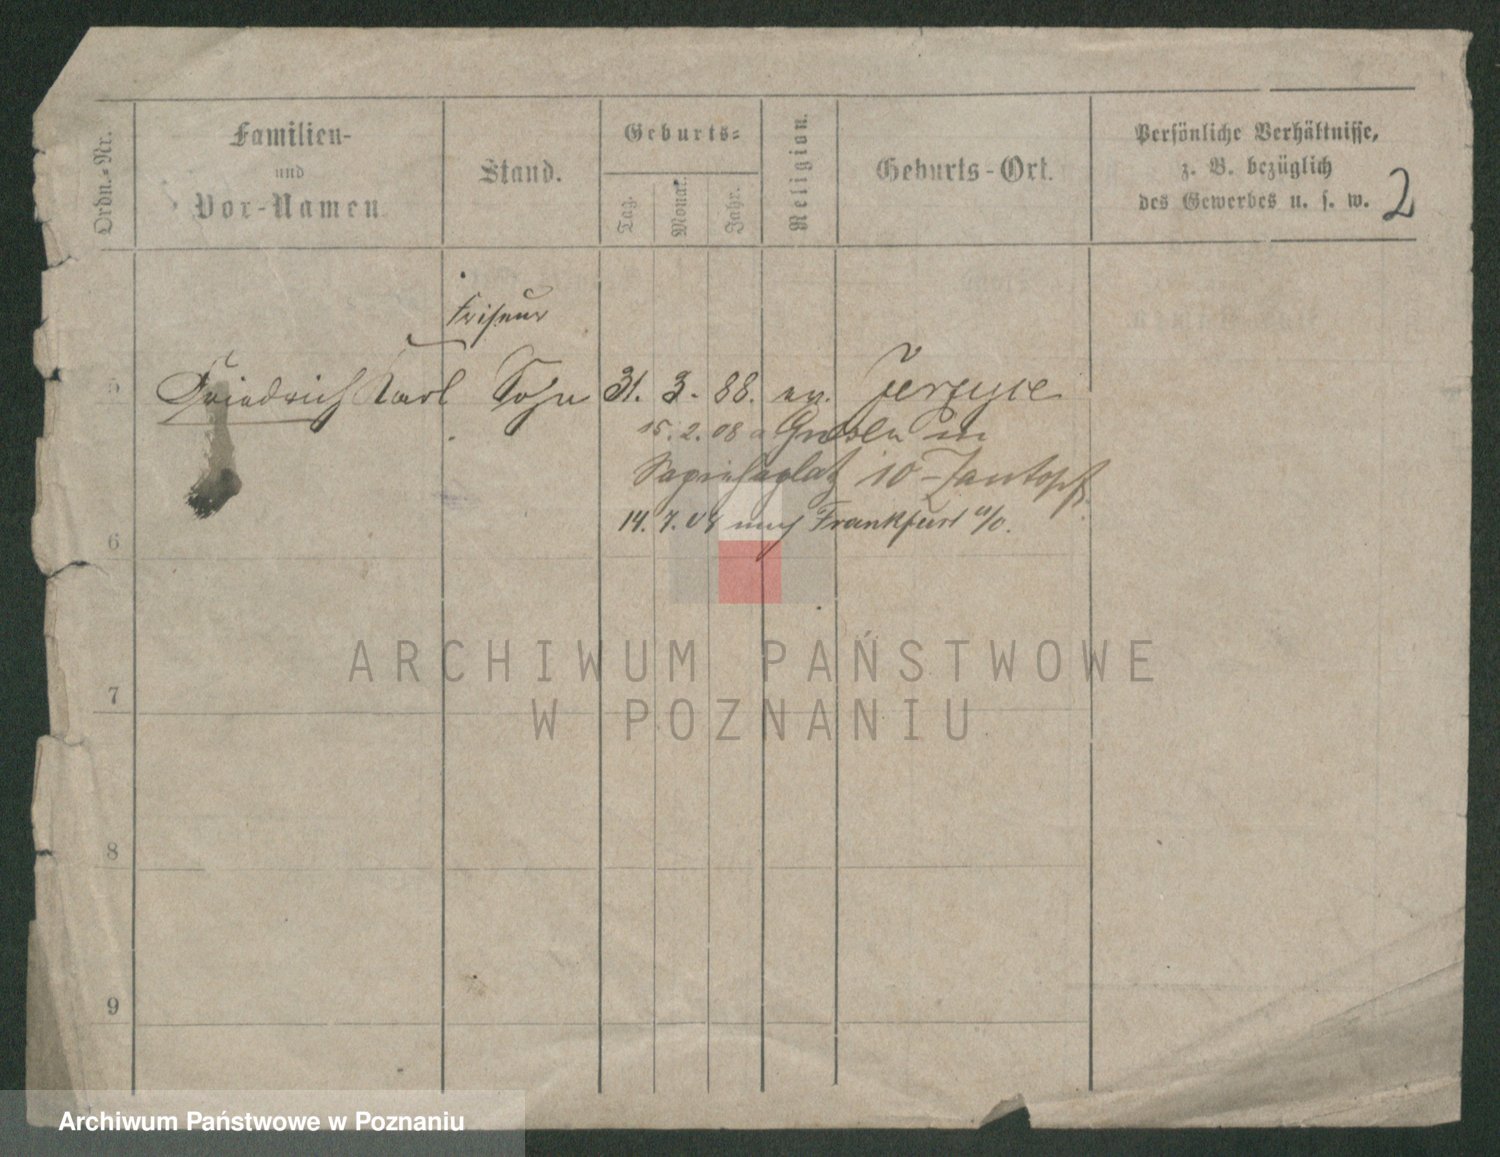 Ordn.-Nr.
Familien-
und
Vor-Namen
Stand.
Geburts-
Tag.
Monat.
Jahr.
Religion.
Geburts-Ort.
Persönliche Verhältnisse,
z. B. bezüglich
des Gewerbes u. s. w.
2
Friseur
5 Friedrich Karl Sohn 31. 3. 88. ev. Jerzyce
15. 2. 08 a
Sapiehaplatz 10 - Zantopf
14. 7. 08 nach Frankfurt a/O.
6
7
8
9
ARCHIWUM PAŃSTWOWE
W POZNANIU
Archiwum Państwowe w Poznaniu